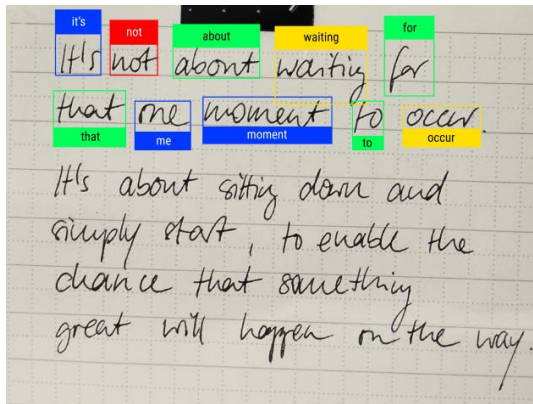 it's not about waiting for
It's not about waiting for
that one moment to occur.
that me moment to occur
It's about sitting down and
simply start, to enable the
chance that something
great will happen on the way.